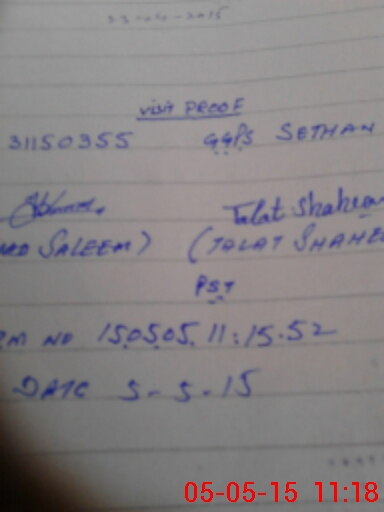 23-04-2015
VISIT PROOF
31150355 GGPS SETHAN
Talat Shaheen
SALEEM) (TALAT SHAHE
PST
RM NO 150505.11:15.52
DATE 5-5-15
05-05-15 11:18